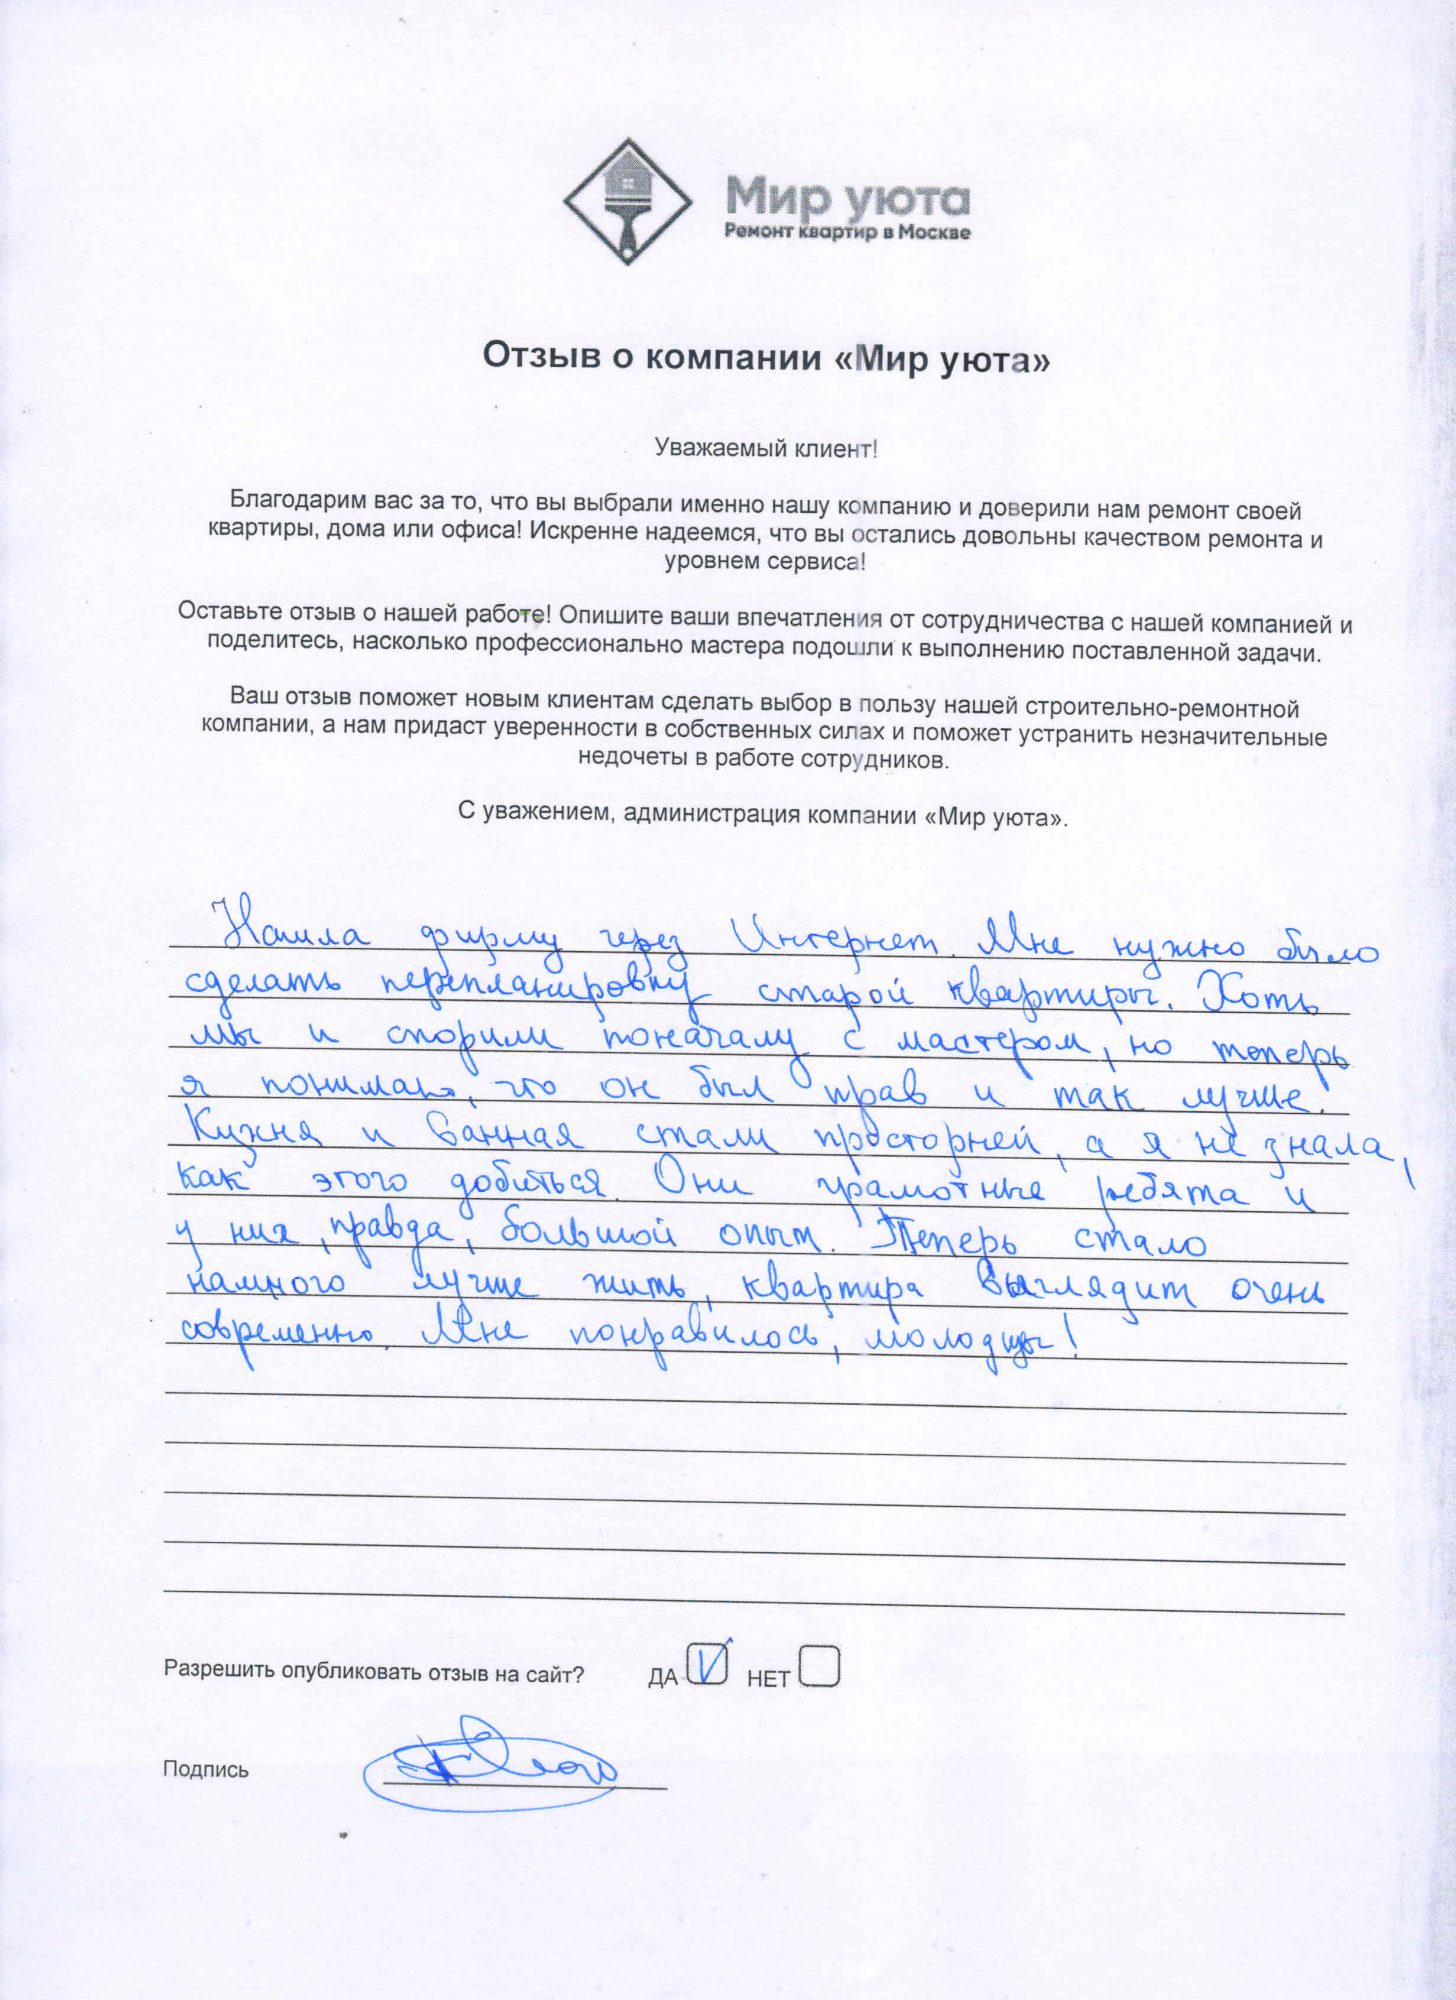 Мир уюта
Ремонт квартир в Москве
Отзыв о компании «Мир уюта»
Уважаемый клиент!
Благодарим вас за то, что вы выбрали именно нашу компанию и доверили нам ремонт своей
квартиры, дома или офиса! Искренне надеемся, что вы остались довольны качеством ремонта и
уровнем сервиса!
Оставьте отзыв о нашей работе! Опишите ваши впечатления от сотрудничества с нашей компанией и
поделитесь, насколько профессионально мастера подошли к выполнению поставленной задачи.
Ваш отзыв поможет новым клиентам сделать выбор в пользу нашей строительно-ремонтной
компании, а нам придаст уверенности в собственных силах и поможет устранить незначительные
недочеты в работе сотрудников.
С уважением, администрация компании «Мир уюта».
Нашла фирму через Интернет. Мне нужно было
сделать перепланировку старой квартиры. Хоть
мы и спорили поначалу с мастером, но теперь
я понимаю, что он был прав и так лучше.
Кухня и ванная стали просторней, а я не знала,
как этого добиться. Они грамотные ребята и
у них, правда, большой опыт. Теперь стало
намного лучше жить, квартира выглядит очень
современно. Мне понравилось, молодцы!
Разрешить опубликовать отзыв на сайт? ДА V НЕТ
Подпись